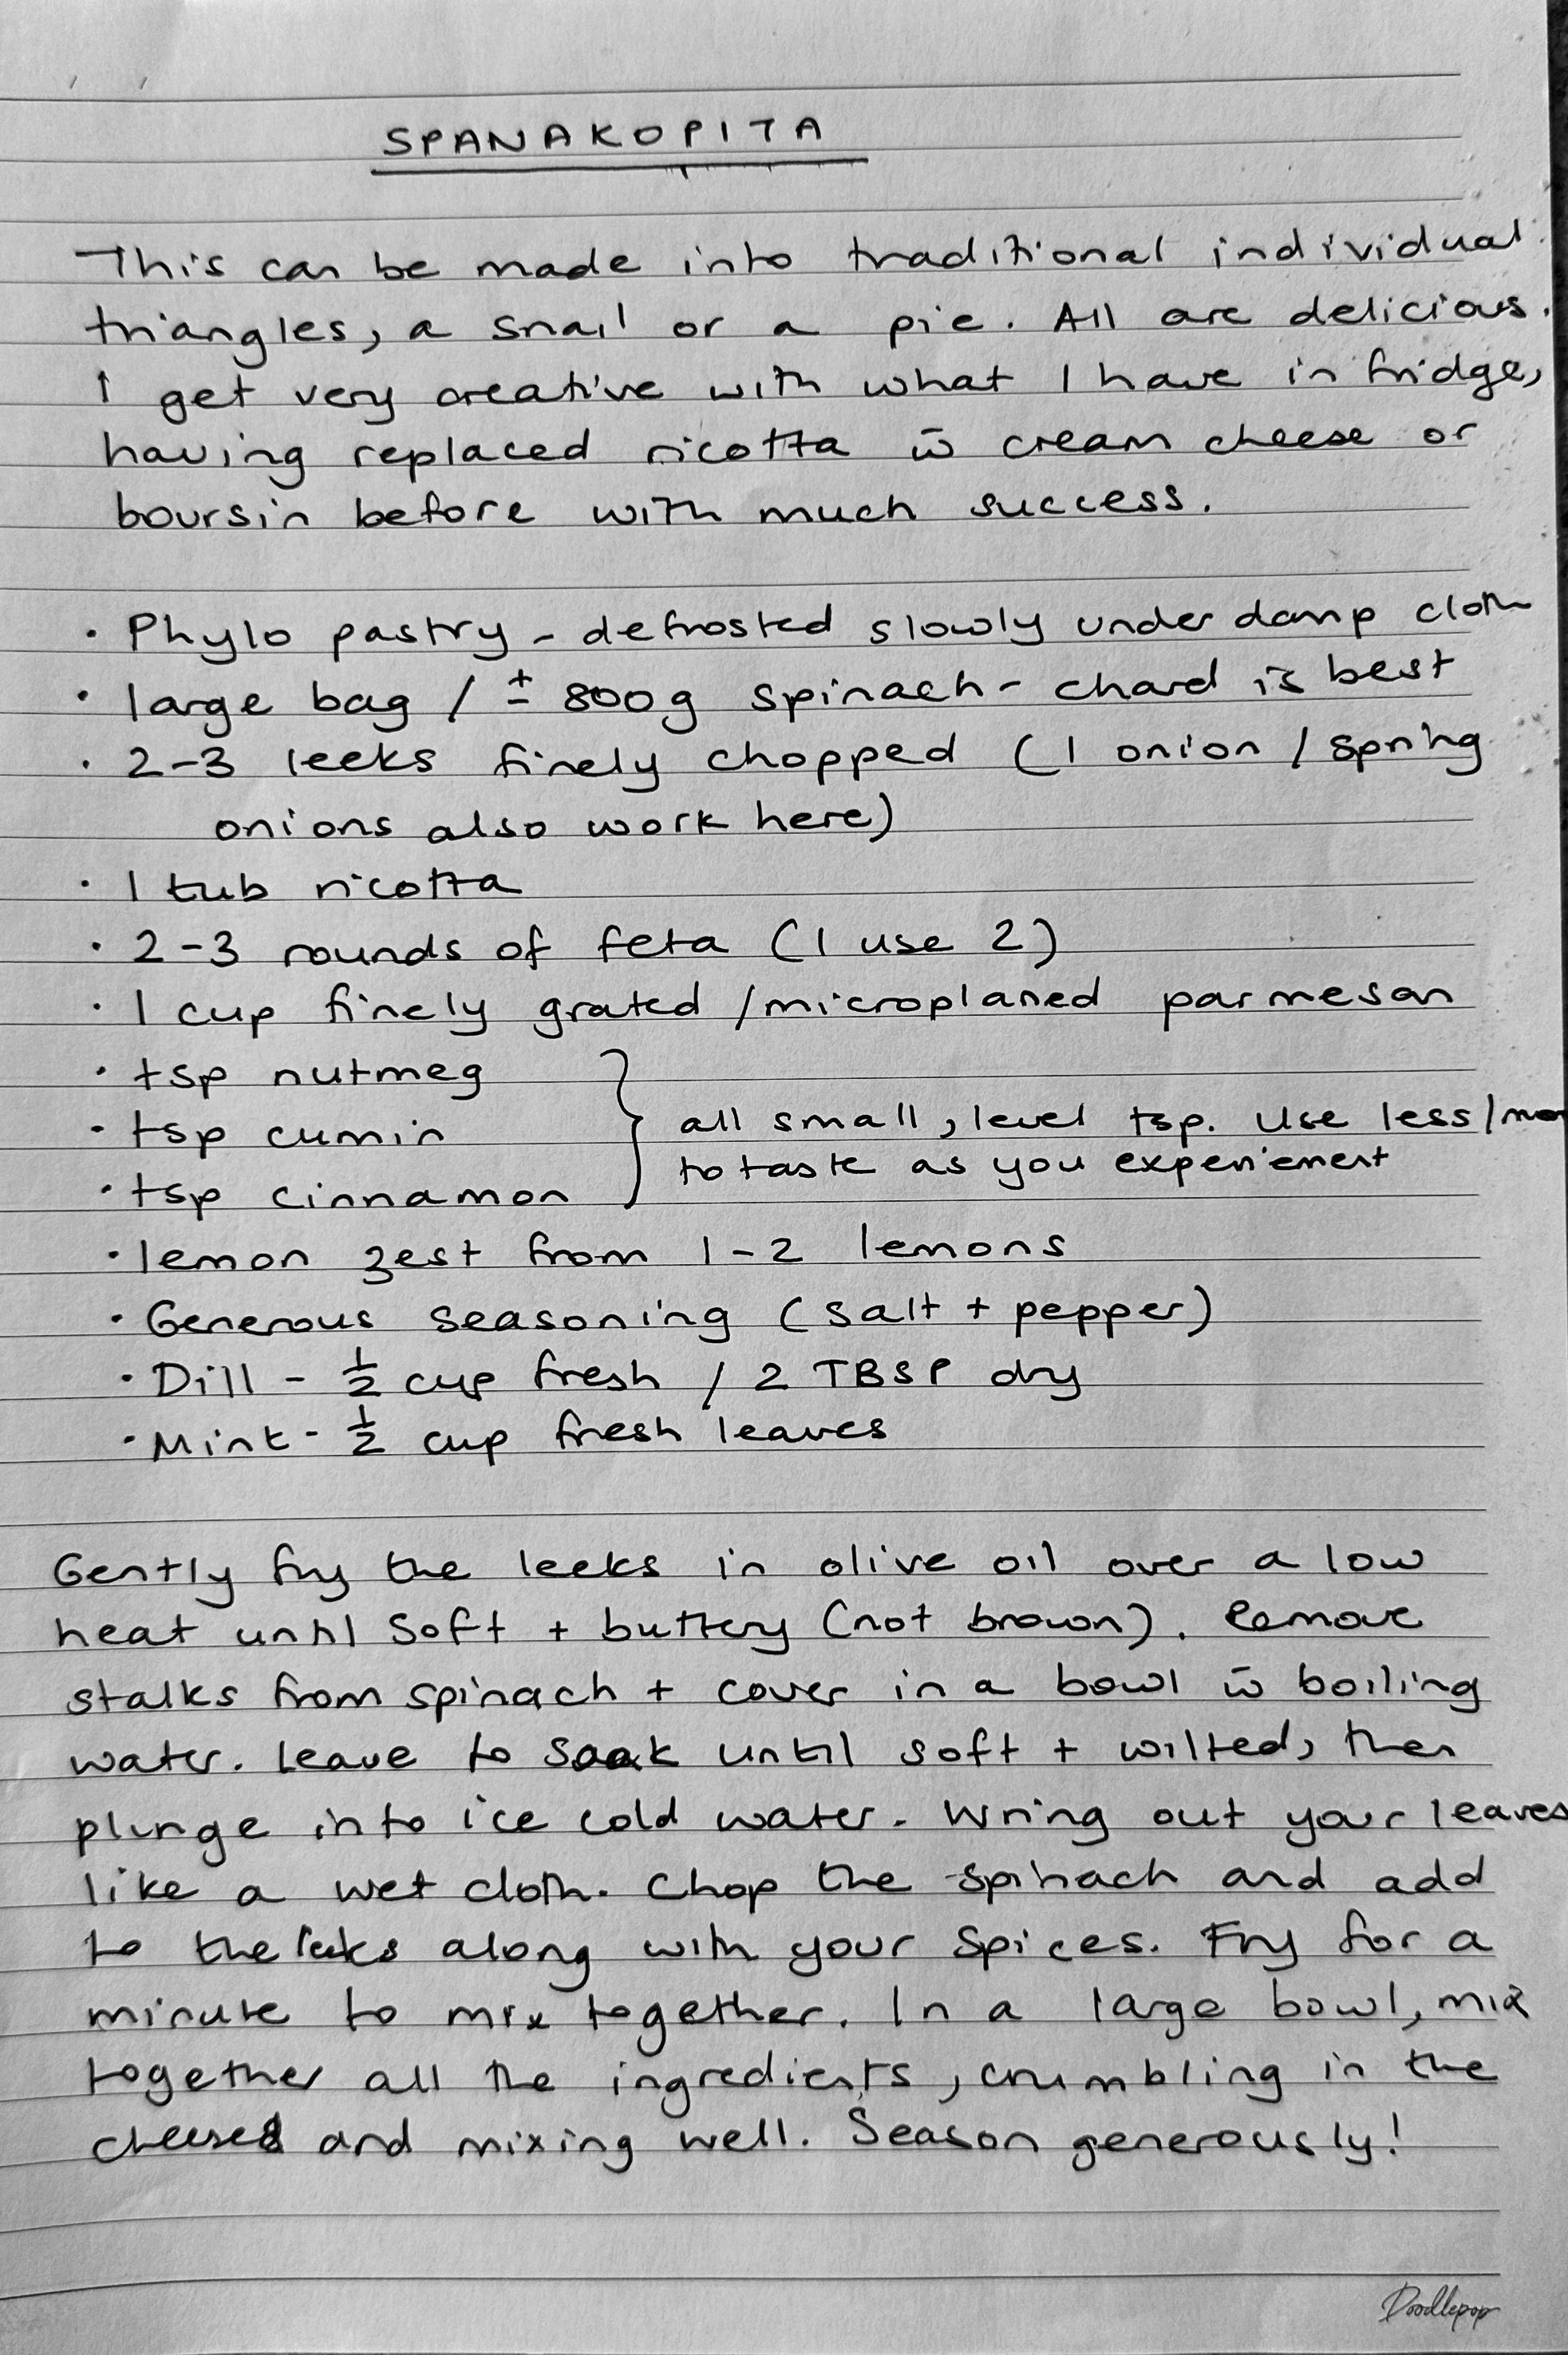 SPANAKOPITA
This can be made into traditional individual
triangles, a snail or a pie. All are delicious.
I get very creative with what I have in fridge,
having replaced ricotta w̄ cream cheese or
boursin before with much success.
• Phylo pastry - defrosted slowly under damp cloth
• large bag / ± 800g spinach - chard is best
• 2-3 leeks finely chopped (1 onion / spring
onions also work here)
• 1 tub ricotta
• 2-3 rounds of feta (I use 2)
• 1 cup finely grated /microplaned parmesan
• tsp nutmeg
• tsp cumin
• tsp cinnamon
} all small, level tsp. Use less/more
to taste as you experiement
• lemon zest from 1-2 lemons
• Generous seasoning (salt + pepper)
• Dill - ½ cup fresh / 2 TBSP dry
• Mint - ½ cup fresh leaves
Gently fry the leeks in olive oil over a low
heat until soft + buttery (not brown). Remove
stalks from spinach + cover in a bowl w̄ boiling
water. Leave to soak until soft + wilted, then
plunge into ice cold water. Wring out your leaves
like a wet cloth. Chop the spinach and add
to the leeks along with your spices. Fry for a
minute to mix together. In a large bowl, mix
together all the ingredients, crumbling in the
cheeses and mixing well. Season generously!
Doodlepop